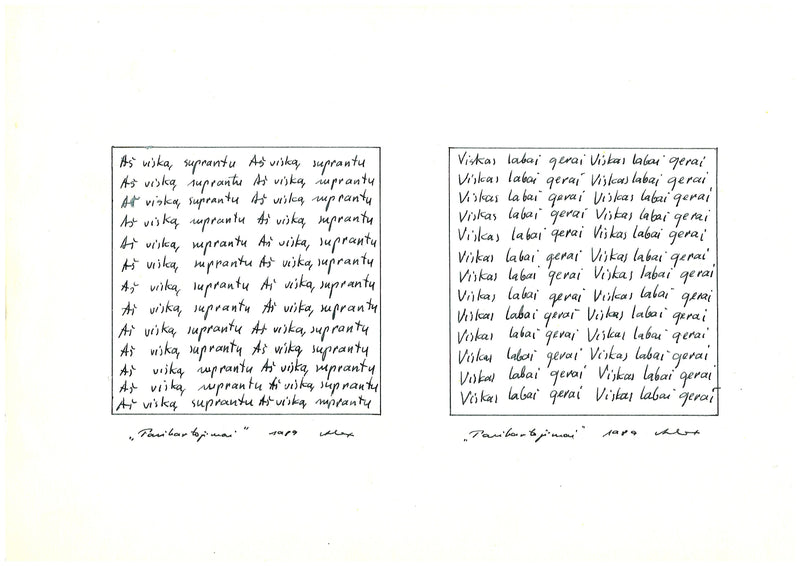 Aš viską suprantu Aš viską suprantu
Aš viską suprantu Aš viską suprantu
Aš viską suprantu Aš viską suprantu
Aš viską suprantu Aš viską suprantu
Aš viską suprantu Aš viską suprantu
Aš viską suprantu Aš viską suprantu
Aš viską suprantu Aš viską suprantu
Aš viską suprantu Aš viską suprantu
Aš viską suprantu Aš viską suprantu
Aš viską suprantu Aš viską suprantu
Aš viską suprantu Aš viską suprantu
Aš viską suprantu Aš viską suprantu
Aš viską suprantu Aš viską suprantu
„Pasikartojimai" 1989
Viskas labai gerai Viskas labai gerai
Viskas labai gerai Viskas labai gerai
Viskas labai gerai Viskas labai gerai
Viskas labai gerai Viskas labai gerai
Viskas labai gerai Viskas labai gerai
Viskas labai gerai Viskas labai gerai
Viskas labai gerai Viskas labai gerai
Viskas labai gerai Viskas labai gerai
Viskas labai gerai Viskas labai gerai
Viskas labai gerai Viskas labai gerai
Viskas labai gerai Viskas labai gerai
Viskas labai gerai Viskas labai gerai
Viskas labai gerai Viskas labai gerai
„Pasikartojimai" 1989